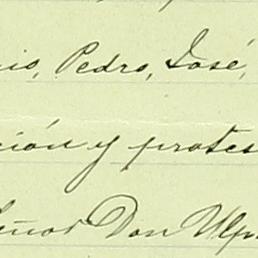 nio, Pedro, José,
ción y protes
Señor Don Ulp